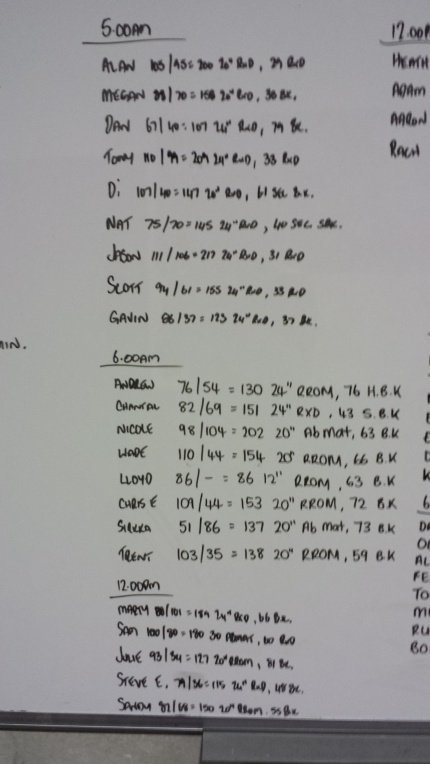 5:00AM
ALAN 105/95=200 20" RxD, 29 RxD
MEGAN 88/70=158 20" RxD, 30 BK.
DAN 67/40=107 24" RxD, 79 BK.
TONY 110/99=209 24" RxD, 33 RxD
Di 107/40=147 20" RxD, 61 SEC BK.
NAT 75/70=145 24" RxD, 40 SEC SBK.
JASON 111/106=217 24" RxD, 31 RxD
SCOTT 94/61=155 24" RxD, 33 RxD
GAVIN 86/37=123 24" RxD, 37 BK.
MIN.
6:00AM
ANDREW 76/54 = 130 24" RROM, 76 H.B.K
CHANTAL 82/69 = 151 24" RXD, 43 S.B.K
NICOLE 98/104 = 202 20" Ab mat, 63 B.K
WADE 110/44 = 154 20" RROM, 66 B.K
LLOYD 86/- = 86 12" RROM, 63 B.K
CHRIS E 109/44 = 153 20" RROM, 72 B.K
SIERRA 51/86 = 137 20" Ab mat, 73 B.K
TRENT 103/35 = 138 20" RROM, 59 B.K
12:00pm
MARTY 88/101=189 24" RxD, 66 BK.
SAM 100/80=180 30 ABMAT, 60 RxD
JULIE 93/34=127 20" RROM, 81 BK.
STEVE E. 79/36=115 24" RxD, 48 BK.
SANDY 82/68=150 20" RROM. 55 BK
12.00P
HEATH
ADAM
AARON
RACH
K
6
AL
FE
TO
RU
BO